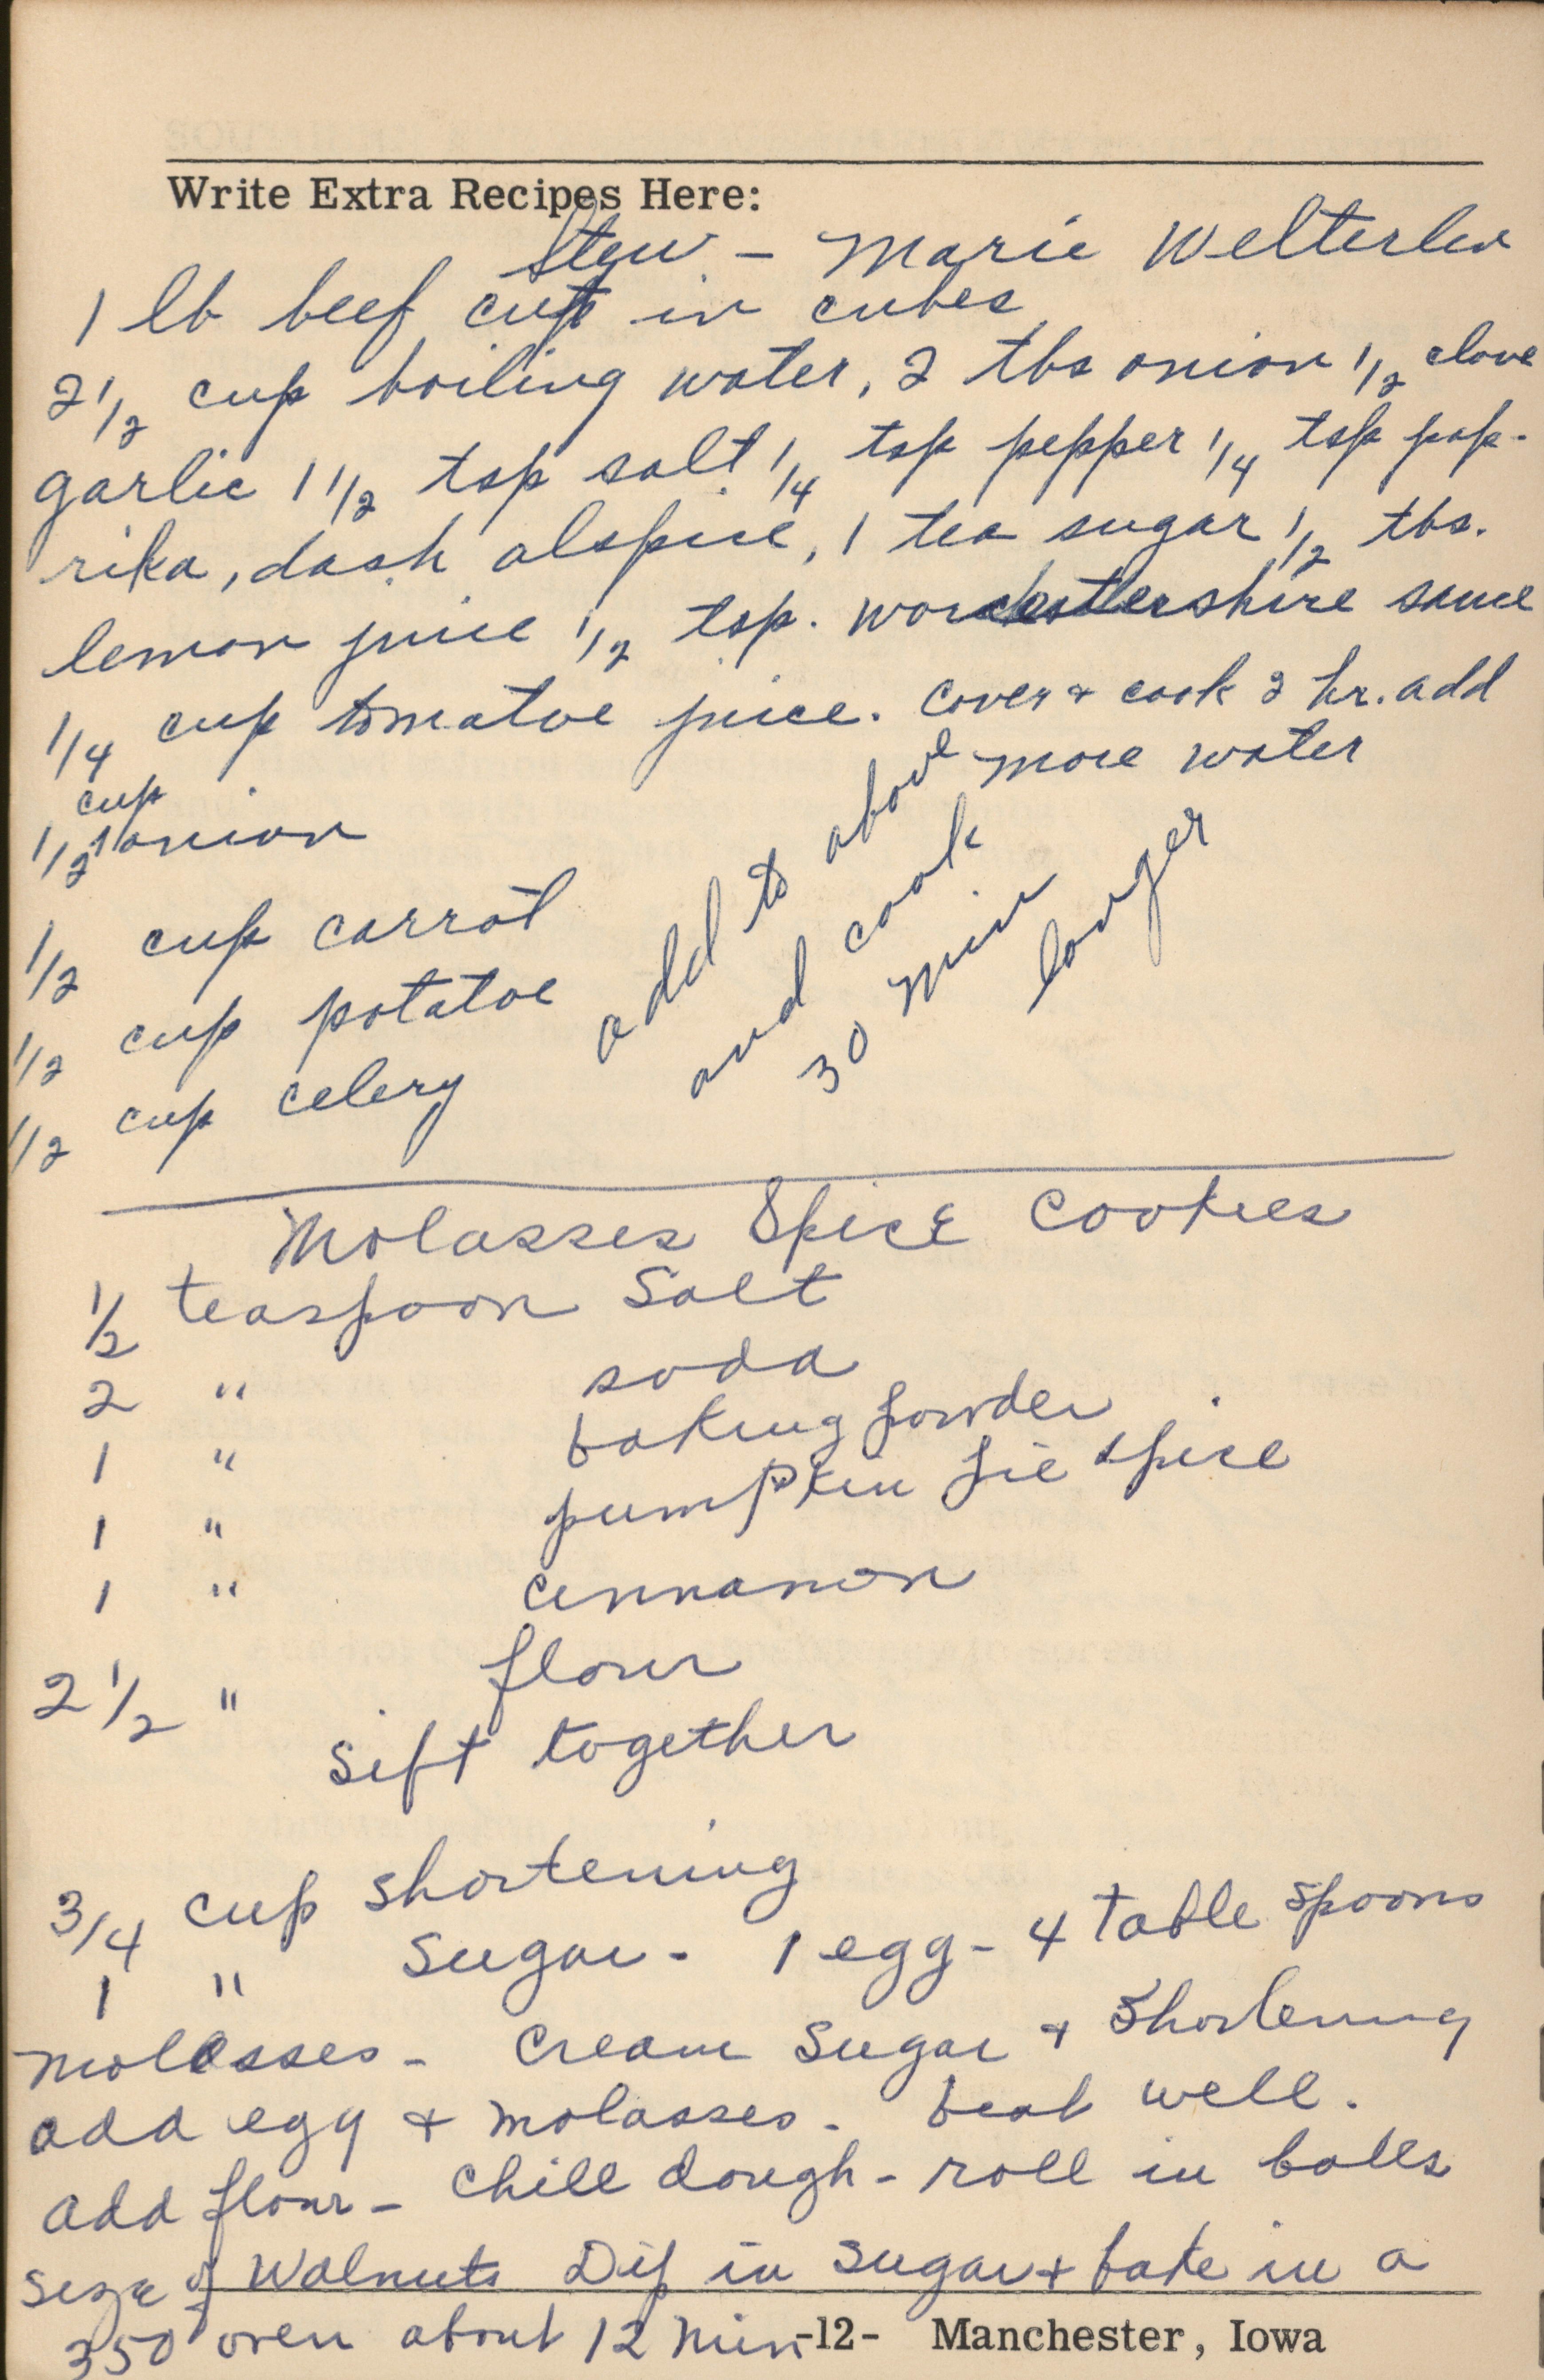 Write Extra Recipes Here:
Stew - Marie Welterlen
1 lb beef cut in cubes
2 1/2 cup boiling water, 2 tbs onion 1/2 clove
garlic 1 1/2 tsp salt 1/4 tsp pepper 1/4 tsp pap-
rika, dash alspice, 1 tea sugar 1/2 tbs.
lemon juice 1/2 tsp. worchestershire sauce
1/4 cup tomatoe juice. Cover + cook 2 hr. add
more water
cup
1/2 onion
1/2 cup carrot
1/2 cup potatoe
1/2 cup celery
add to above
and cook
30 min
longer
Molasses Spice Cookies
1/2 teaspoon Salt
2 " soda
1 " baking powder
1 " pumpkin pie spice
1 " cinnamon
2 1/2 " flour
Sift together
3/4 cup shortening
1 " Sugar - 1 egg - 4 table spoons
molasses - Cream Sugar + Shortening
add egg + molasses - beat well.
add flour - Chill dough - roll in balls
size of Walnuts Dip in Sugar + bake in a
350 oven about 12 Min
-12- Manchester, Iowa